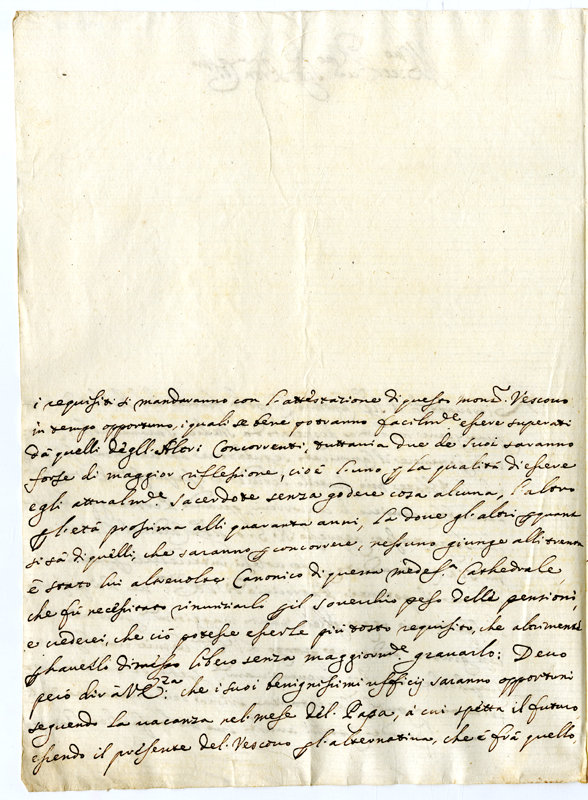 i requisiti si mandaranno con l'attestazione di questo mons.r Vescovo
in tempo opportuno, i quali se bene potranno facilm.te essere superati
dà quelli degli Altri Concorrenti, tuttavia due de suoi saranno
forse di maggior riflessione, cioè l'uno p la qualità di essere
egli attualm.te Sacerdote senza godere cosa alcuna, l'altro
p l'età prossima alli quaranta anni, la dove gl'altri p quant
si sà di quelli, che saranno p concorrere, nessuno giunge alli trenta
è stato lui altrevolte Canonico di questa medes.a Cathedrale
che fù necessitato rinunziarlo p il soverchio peso delle pensioni,
e crederei, che ciò potesse esserle più tosto requisito, che altrimenti
p haverlo dimesso libero senza maggiorm.te gravarlo: Devo
però dir à V.E.za che i suoi benignissimi ufficij saranno opportuni
seguendo la vacanza nel mese del Papa, à cui spetta il futuro
essendo il presente del Vescovo p l'alternativa, che è frà quello,